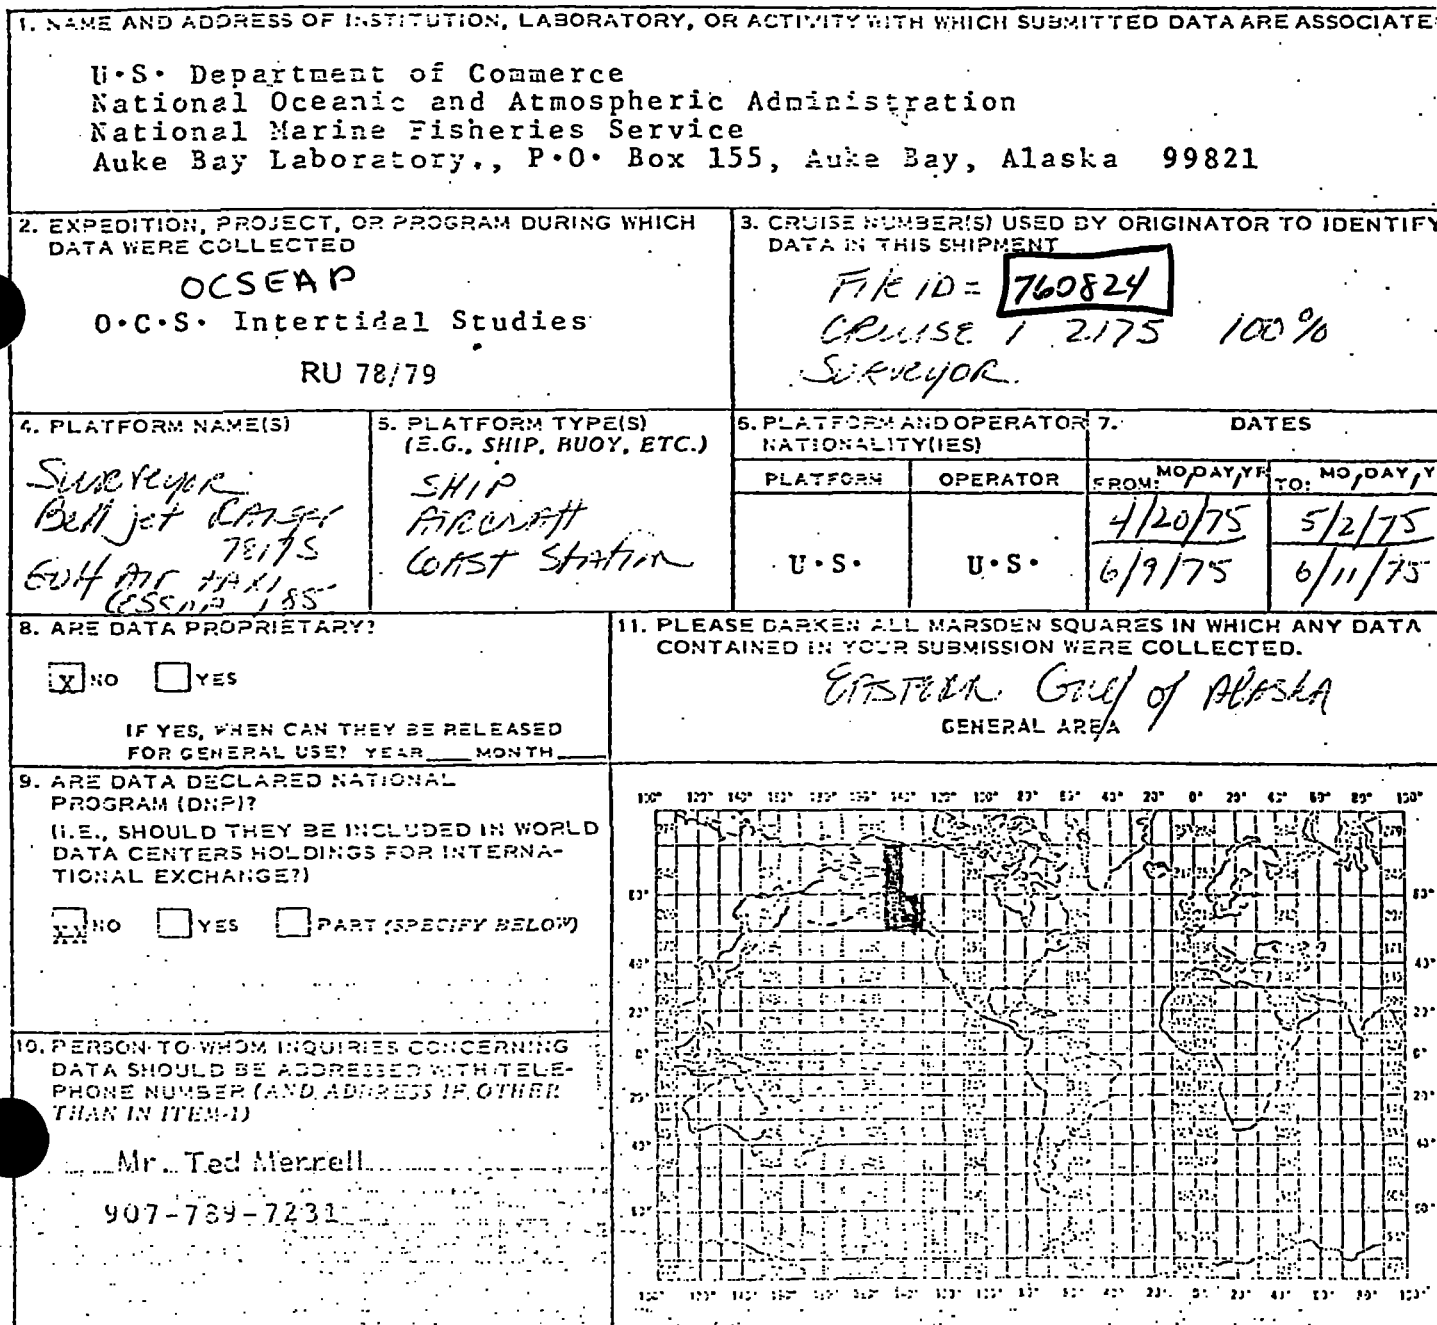 1. NAME AND ADDRESS OF INSTITUTION, LABORATORY, OR ACTIVITY WITH WHICH SUBMITTED DATA ARE ASSOCIATE
U.S. Department of Commerce
National Oceanic and Atmospheric Administration
National Marine Fisheries Service
Auke Bay Laboratory., P.O. Box 155, Auke Bay, Alaska 99821
2. EXPEDITION, PROJECT, OR PROGRAM DURING WHICH
DATA WERE COLLECTED
OCSEAP
O.C.S. Intertidal Studies
RU 78/79
3. CRUISE NUMBER(S) USED BY ORIGINATOR TO IDENTIFY
DATA IN THIS SHIPMENT
File ID = 760824
CRUISE 1 2175 100%
Surveyor
4. PLATFORM NAME(S)
Surveyor
Bell jet Ranger
78175
Gulf Air TAXI
CESSNA 185
5. PLATFORM TYPE(S)
(E.G., SHIP, BUOY, ETC.)
SHIP
AIRCRAFT
COAST Station
6. PLATFORM AND OPERATOR
NATIONALITY(IES)
PLATFORM OPERATOR
U.S. U.S.
7. DATES
FROM: MO, DAY, YR TO: MO, DAY, Y
4/20/75 5/2/75
6/9/75 6/11/75
8. ARE DATA PROPRIETARY?
X NO YES
IF YES, WHEN CAN THEY BE RELEASED
FOR GENERAL USE? YEAR____ MONTH____
9. ARE DATA DECLARED NATIONAL
PROGRAM (DNP)?
(I.E., SHOULD THEY BE INCLUDED IN WORLD
DATA CENTERS HOLDINGS FOR INTERNA-
TIONAL EXCHANGE?)
XX NO YES PART (SPECIFY BELOW)
10. PERSON TO WHOM INQUIRIES CONCERNING
DATA SHOULD BE ADDRESSED WITH TELE-
PHONE NUMBER (AND ADDRESS IF OTHER
THAN IN ITEM-1)
Mr. Ted Merrell
907-789-7231
11. PLEASE DARKEN ALL MARSDEN SQUARES IN WHICH ANY DATA
CONTAINED IN YOUR SUBMISSION WERE COLLECTED.
EASTERN Gulf of ALASKA
GENERAL AREA